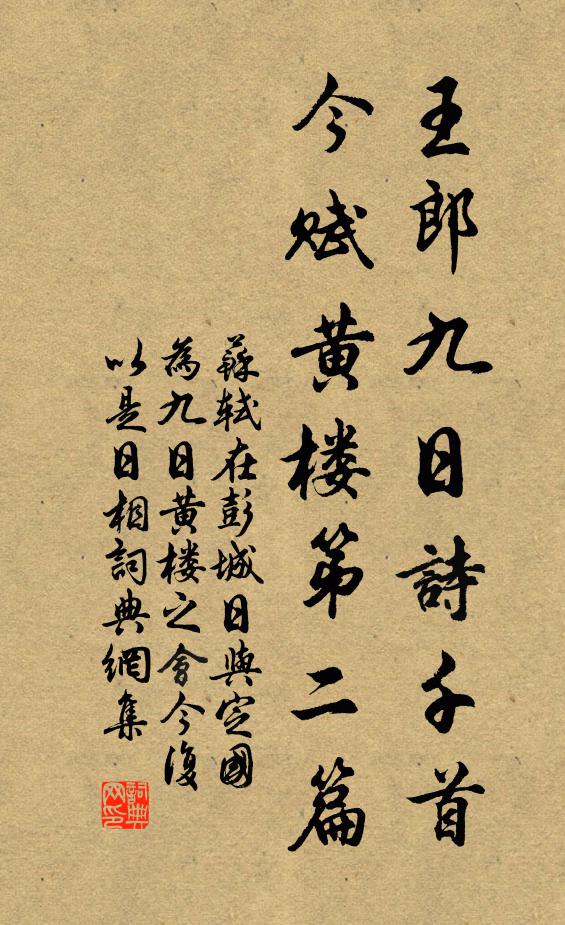 王郎九日詩千首
今赋黄楼第二篇
蘇軾在彭城日與定國
為九日黄楼之會今復
以是日相詞典網集
詞典
网印